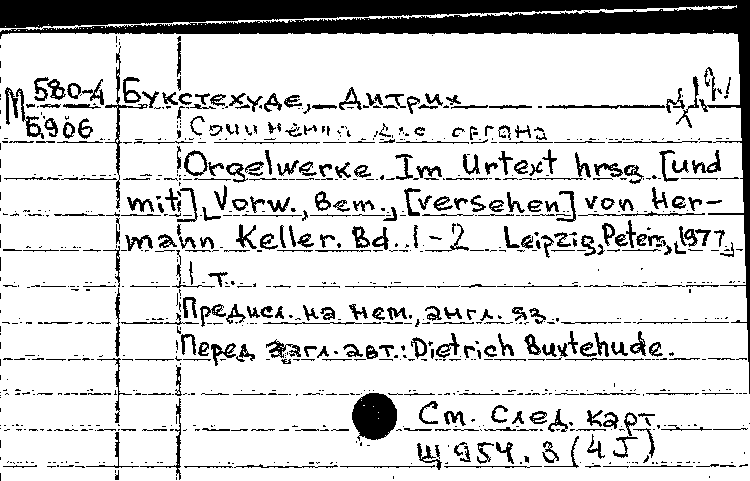 М 580-4 Букстехуде, Дитрих
Б906 Сочинения для органа
Orgelwerke. Im Urtext hrsg. [und
mit], Vorw., Bem., [versehen] von Her-
mann Keller. Bd. 1-2 Leipzig, Peters, [1977]
1 т.
Предисл. на нем., англ. яз.
Перед загл. авт.: Dietrich Buxtehude.
См. след. карт.
Щ 954.3 (4 J)